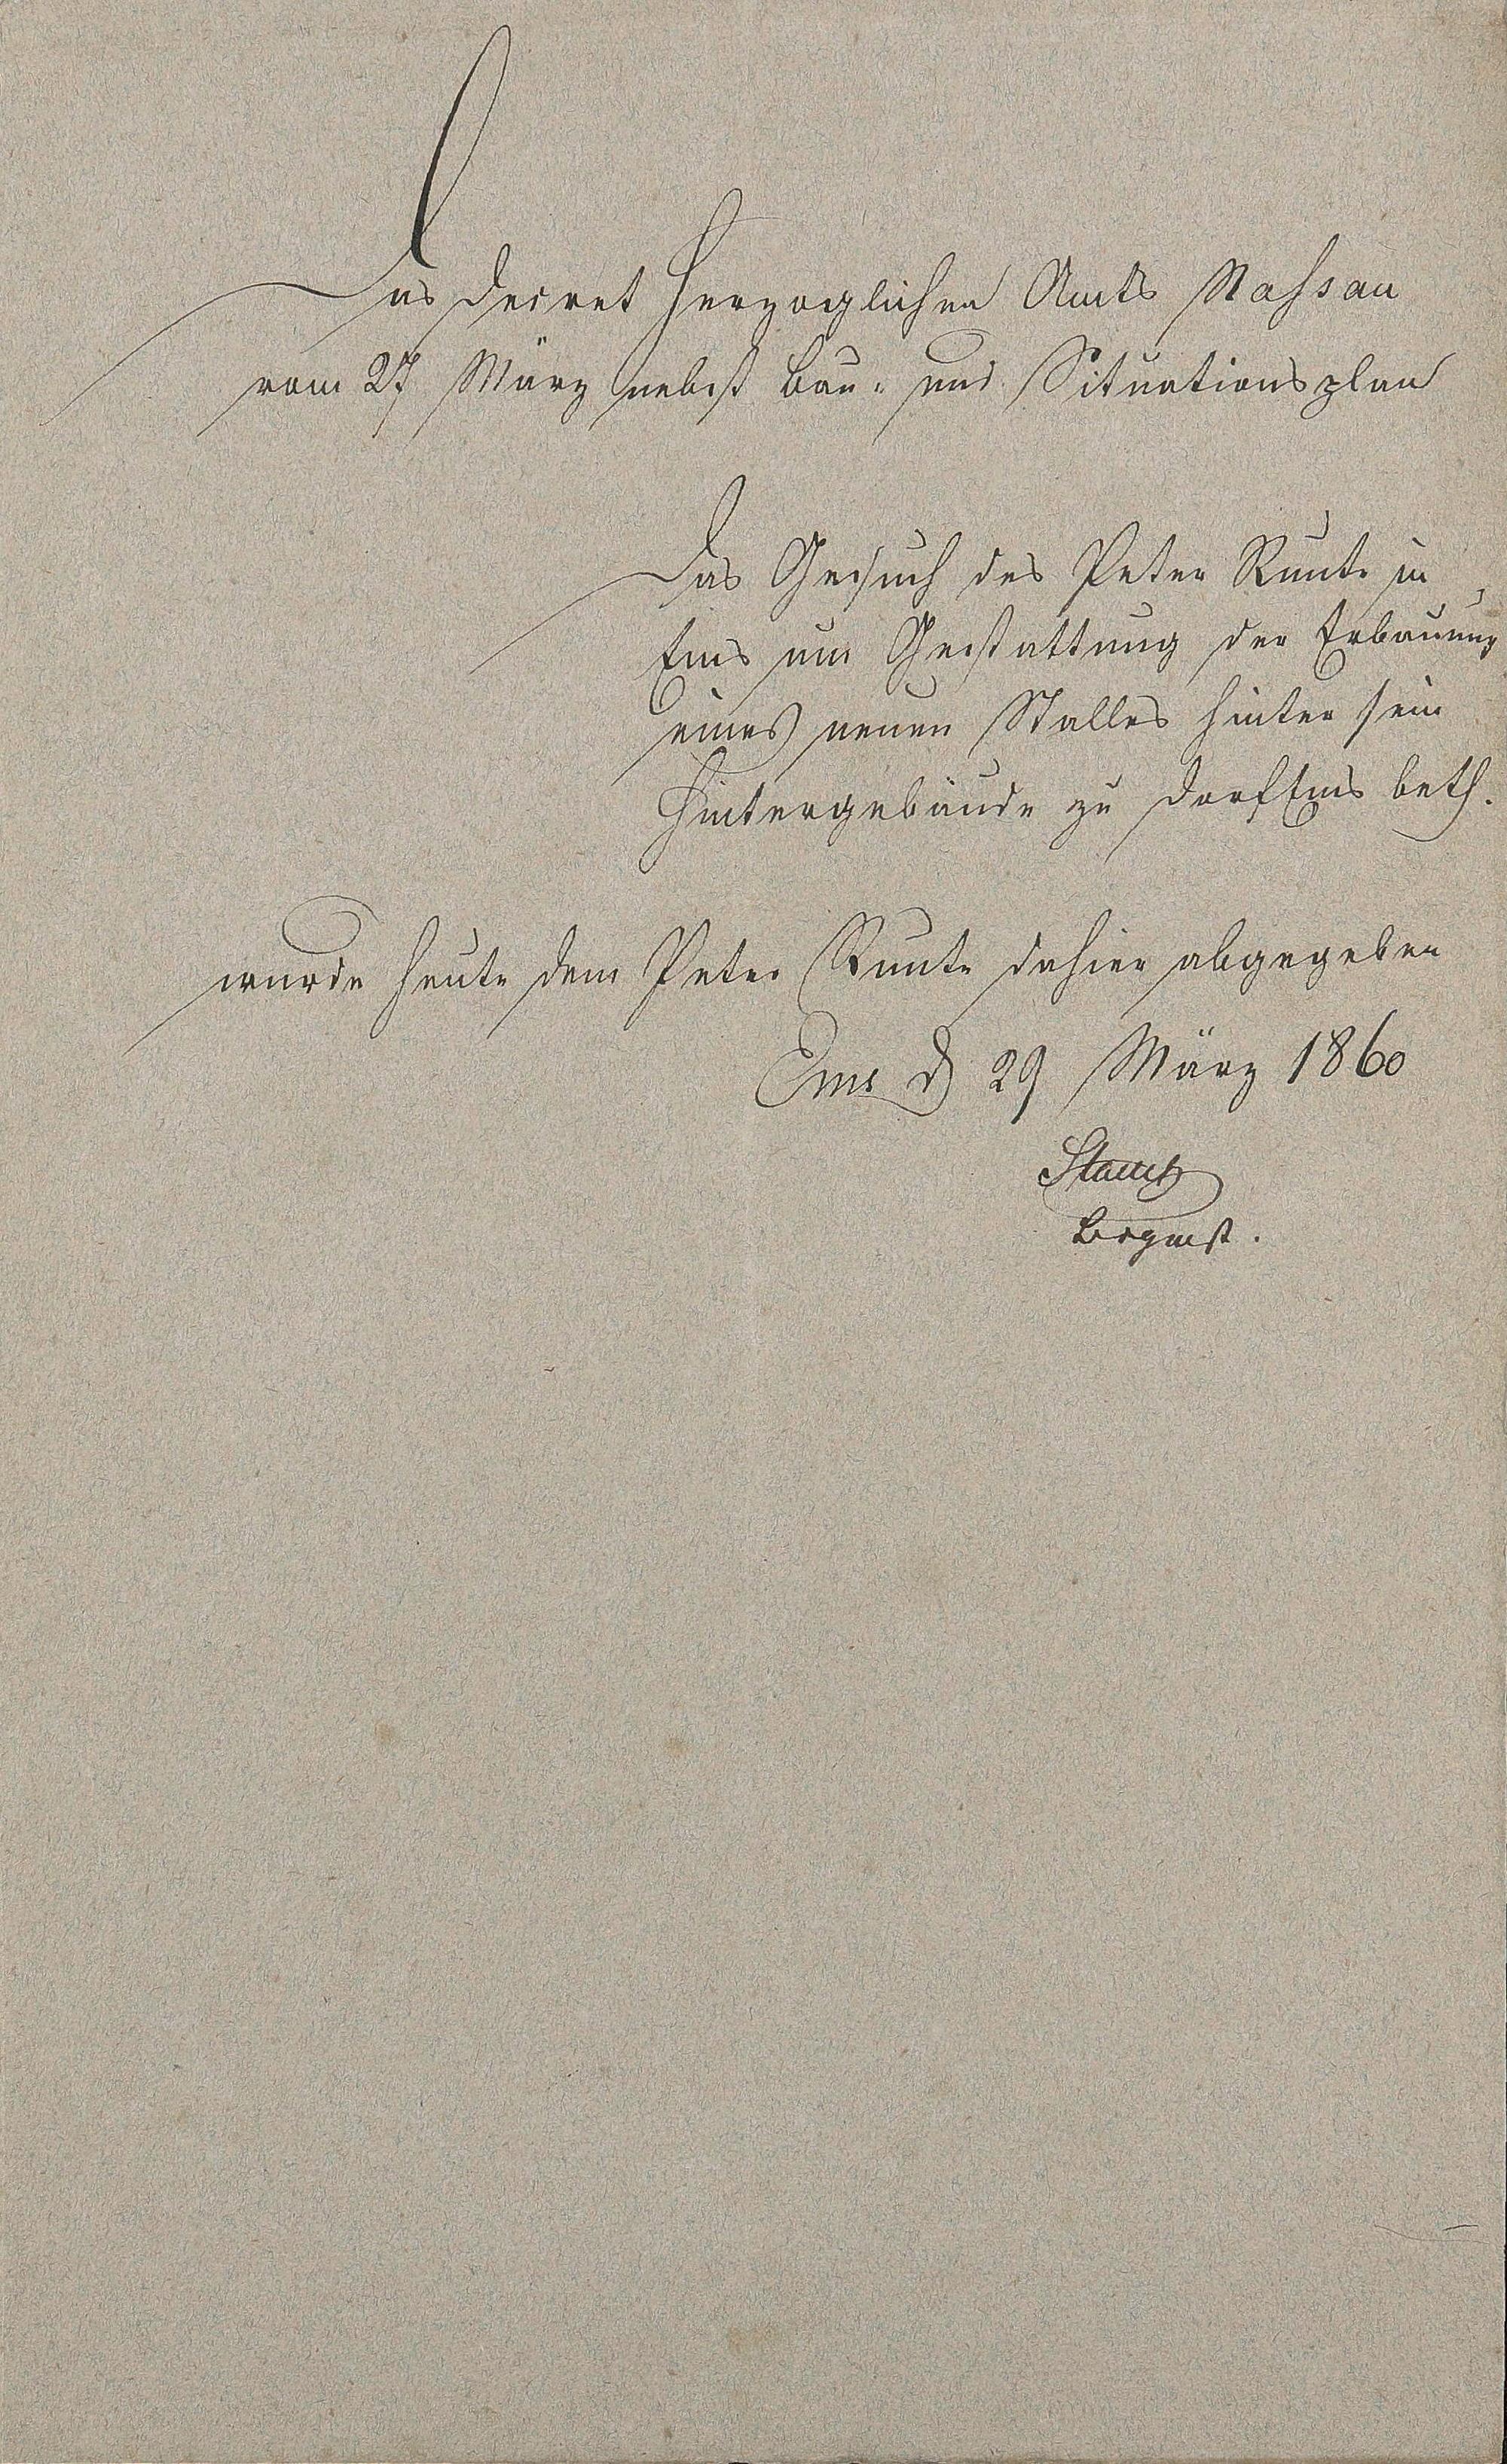 Das Decret Herzoglichen Amts Nassau
vom 27 März nebst Bau- und Situationsplan
Das Gesuch des Peter Runte in
Ems um Gestattung der Erbauung
eines neuen Stalles hinter sein
Hintergebäude zu DorfEms betr.
wurde heute dem Peter Runte dahier abgegeben
Ems d 29 März 1860
Brgmst.